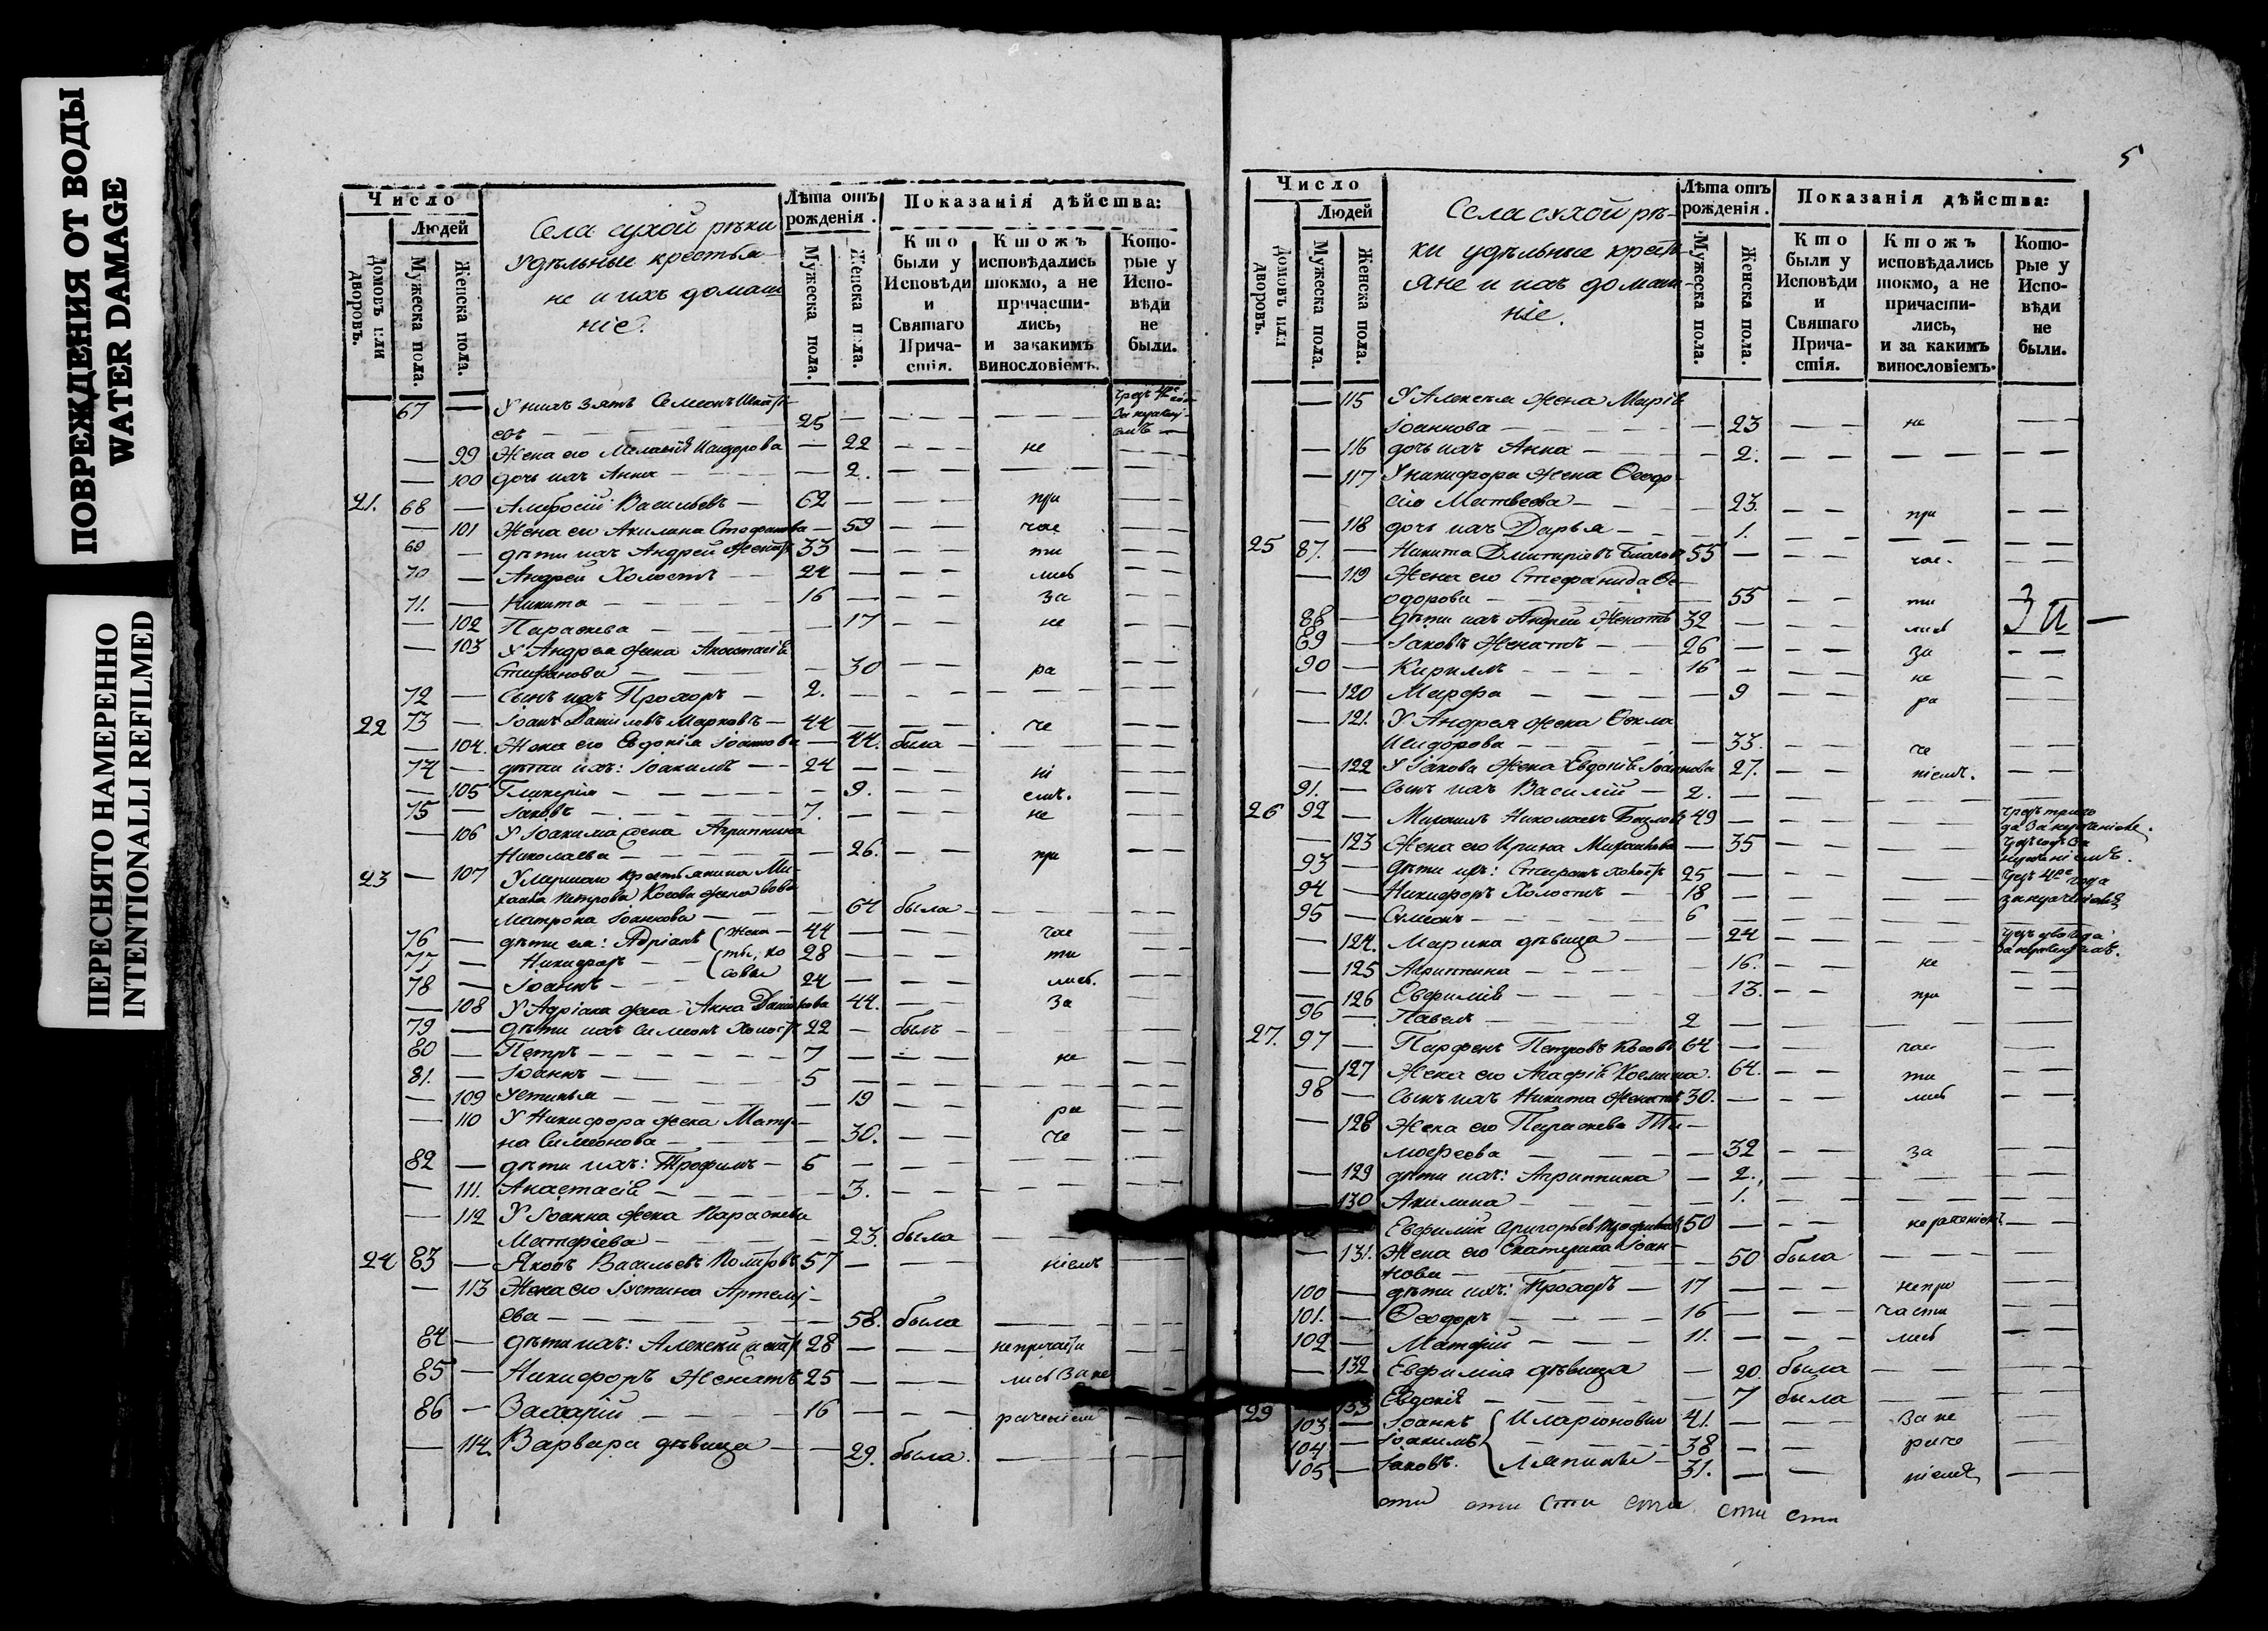 ПОВРЕЖДЕНИЯ ОТ ВОДЫ
WATER DAMAGE
ПЕРЕСНЯТО НАМЕРЕННО
INTENTIONALLI REFILMED
Число
Людей
Домовъ или дворовъ.
Мужеска пола.
Женска пола.
Села сухой рѣки
удѣльные крестья
не и ихъ домаш
ніе.
Лѣта отъ рожденія.
Мужеска пола.
Женска пола.
Показанія дѣйства:
Кто были у Исповѣди и Святаго Прича-стія.
Ктожъ исповѣдались токмо, а не причасти-лись, и закакимъ винословіемъ.
Кото-рые у Испо-вѣди не были.
67 — У нихъ зять Семеонъ
25 — — — — —
— 99 Жена его Меланія Исидорова — 22 — — не — —
— 100 дочь ихъ Анна — — 2. — — — — —
21. 68 — Амвросій Васильевъ — 62 — — — при — —
— 101 Жена его Акилина Стефанова — 59 — — час — —
69 — дѣти ихъ Андрей женатъ 33 — — — ти — —
70 — Андрей Холостъ — 24 — — — лись — —
71. — Никита — — — 16 — — — за — —
— 102 Параскева — — — 17 — — не — —
— 103 У Андрея жена Анастасія
Стефанова — — 30 — — ра — —
72 — Сынъ ихъ Прохоръ — 2. — — — — — —
22 73 — Іоаннъ Даниловъ Марковъ — 44 — — — че — —
— 104. Жена его Евдокія Іоаннова — 44. была — — — —
74 — дѣти ихъ: Іоакимъ — 24 — — — ні — —
— 105 Гликерія — — — 9. — — емъ. — —
75 — Іаковъ — — 7. — — — не — —
— 106 У Іоакима жена Агриппина
Николаева — — — 26. — — при — —
23 — 107 Умершаго крестьянина Ми-
хаила Петрова Косова жена вдова
Матрона Іоаннова — — 64 была — — — —
76 — дѣти ея: Адріанъ (жена — 44 — — — час — —
77 — Никифоръ — (ты, ко 28 — — — ти — —
78 — Іоаннъ — (совы 24 — — — лись. — —
— 108 У Адріана жена Анна Данилова 44. — — за — —
79 — дѣти ихъ Симеонъ Холостъ 22 — былъ — — — —
80 — Петръ — — — 7 — — — не — —
81. — Іоаннъ — — — 5 — — — — — —
— 109 Устинья — — — 19 — — — —
— 110 У Никифора жена Матро-
на Симеонова — — 30. — — ра че — —
82 — дѣти ихъ: Трофимъ — 6 — — — — — —
— 111. Анастасія — — — 3. — — — — — —
— 112 У Іоанна жена Параскева
Матфіева — — — 23. была — — — —
24 83 — Яковъ Васильевъ 57 — — — ніемъ — —
— 113 Жена его Іустина Артемі-
ева — — — 58. была — — — —
84 — дѣти ихъ: Алексѣй женатъ 28 — — — не причасти — —
85 — Никифоръ женатъ 25 — — — лись за не — —
86 — Захарій — — — 16 — — — раченіемъ — —
— 114. Варвара дѣвица — — 29. была. — — — —
5
Число
Людей
Домовъ или дворовъ.
Мужеска пола.
Женска пола.
Села сухой рѣ-
ки удѣльные крест
яне и ихъ домаш
ніе.
Лѣта отъ рожденія.
Мужеска пола.
Женска пола.
Показанія дѣйства:
Кто были у Исповѣди и Святаго Прича-стія.
Ктожъ исповѣдались токмо, а не причасти-лись, и за какимъ винословіемъ.
Кото-рые у Испо-вѣди не были.
— 115 У Алексѣя жена Марія
Іоаннова — — — 23 — — не — —
— 116 дочь ихъ Анна — — 2. — — — — — —
— 117 У Никифора жена Ѳеодо-
сія Матвеева — — 23. — — при — —
— 118 дочь ихъ Дарья — — 1. — — — — — —
25 87. — Никита Дмитріевъ 55 — — — час. — —
— 119 Жена его Стефанида Ѳе-
одорова — — — 55 — — ти
88 — дѣти ихъ Андрей Женатъ 32 — — — лись
89 — Іаковъ Женатъ — 26 — — — за — —
90 — Кириллъ — — 16 — — — не — —
— 120 Марфа — — — 9 — — ра — —
— 121. У Андрея жена Ѳекла
Исидорова — — — 33. — — че — —
— 122 У Іакова жена Евдокія Іоаннова 27. — — ніемъ. — —
91. — Сынъ ихъ Василій — 2. — — — — — —
26 92 — Михаилъ Николаевъ 49 — — — — Чрезъ три го
да за нераченіемъ.
— 123 Жена его Ирина Михайлова — 35 — — — —
93 — дѣти ихъ: Стефанъ холостъ 25 — — — —
94 — Никифоръ Холостъ — 18 — — — —
95 — Симеонъ — — 6 — — — — —
— 124. Марина дѣвица — — 24 — — — — чрезъ два года
за нераченіемъ.
— 125 Агриппина — — — 16. — — не
— 126 Евфимія — — — 13. — — при — —
96 — Павелъ — — 2 — — — — — —
27. 97 — Парфенъ Петровъ Косовъ 64 — — — час — —
— 127 Жена его Агафія Космина. 64. — — ти — —
98 — Сынъ ихъ Никита Женатъ 30. — — — лись — —
— 128 Жена его Параскева Ти-
мофеева — — — 32 — — за — —
— 129 дѣти ихъ: Агриппина — 2. — — — — — —
— 130 Акилина — — — 1. — — — — — —
Евфимій Григорьевъ 50 — — — нераченіемъ — —
— 131. Жена его Екатерина Іоан-
нова — — — 50 была — — —
100 — дѣти ихъ: Прохоръ — 17 — — — не при — —
101. — Ѳеодоръ — — — 16 — — — части — —
102 — Матфій — — — 11. — — — лись — —
— 132 Евфимія дѣвица — 20. была — — — —
133 Евдокія — — — 7 была — — — —
29 103 — Іоаннъ { Иларіоновы 41. — — — за не — —
104 — Іоакимъ { — — — 38 — — раче — —
105 — Іаковъ. { Ляпины — 31. — — ніемъ — —
сти сти сти сти сти сти